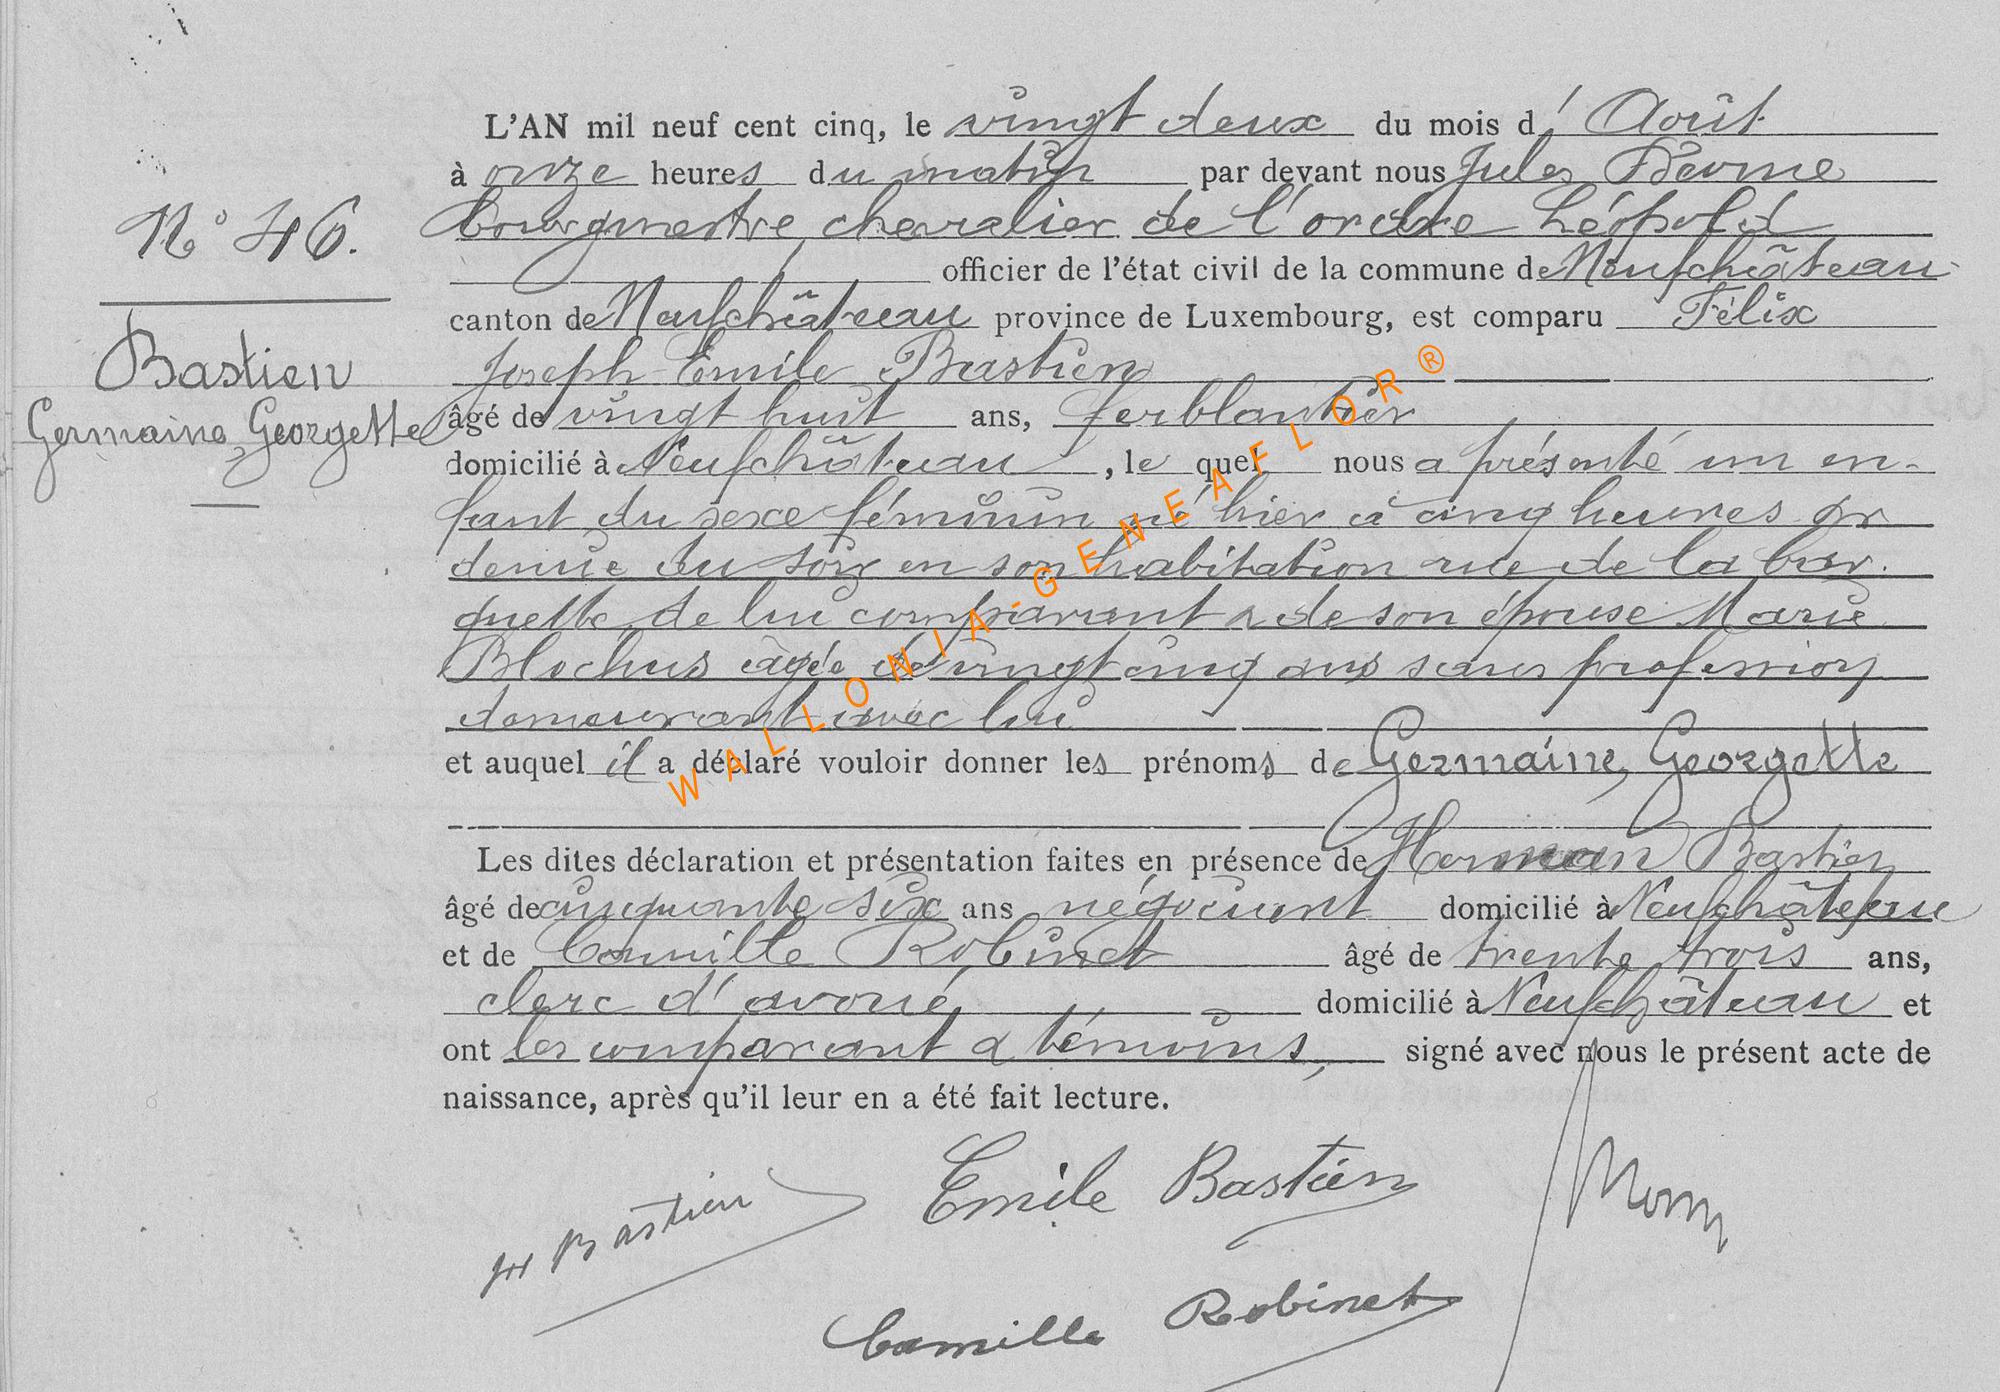 L'AN mil neuf cent cinq, le vingt deux du mois d' Août
à onze heures du matin par devant nous Jules
N° 46.
bourgmestre, chevalier de l'ordre Léopold
officier de l'état civil de la commune de Neufchâteau
canton de Neufchâteau province de Luxembourg, est comparu Félix
Bastien
Germaine, Georgette
Joseph Emile Bastien
âgé de vingt huit ans, ferblantier
domicilié à Neufchâteau, le quel nous a présenté un en-
fant du sexe féminin né hier à cinq heures &
demie du soir en son habitation rue de la
de lui comparant & de son épouse Marie
Blochus âgée de vingt cinq ans sans profession
demeurant avec lui
et auquel il a déclaré vouloir donner les prénoms de Germaine, Georgette
Les dites déclaration et présentation faites en présence de Bastien
âgé de cinquante six ans négociant domicilié à Neufchâteau
et de Camille Robinet âgé de trente trois ans,
clerc d'avoué domicilié à Neufchâteau et
ont les comparant & témoins, signé avec nous le présent acte de
naissance, après qu'il leur en a été fait lecture.
Emile Bastien
Bastien
Camille Robinet
WALLONIA-GENEAFLOR®